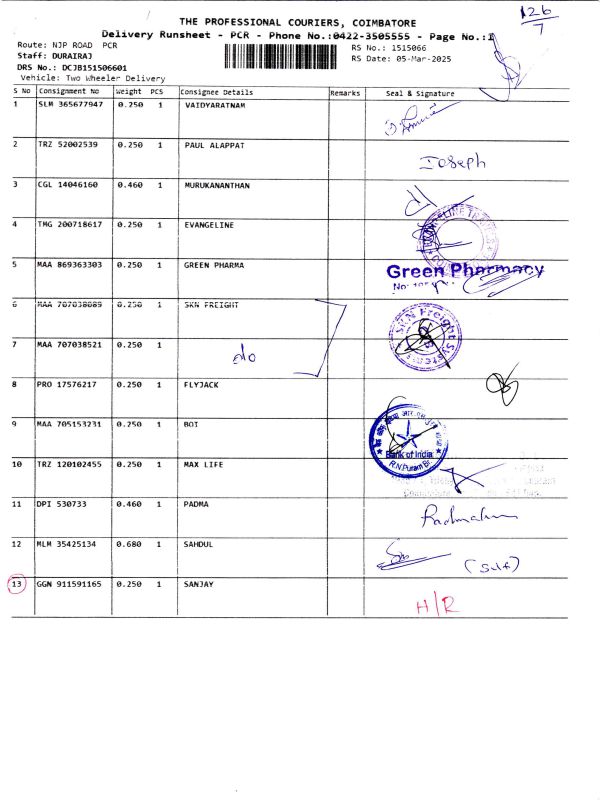 126
7
THE PROFESSIONAL COURIERS, COIMBATORE
Delivery Runsheet - PCR - Phone No.:0422-3505555 - Page No.:1
Route: NJP ROAD PCR
Staff: DURAIRAJ
DRS No.: DCJB151506601
Vehicle: Two Wheeler Delivery
RS No.: 1515066
RS Date: 05-Mar-2025
S No Consignment No Weight PCS Consignee Details Remarks Seal & Signature
1 SLM 365677947 0.250 1 VAIDYARATNAM
2 TRZ 52002539 0.250 1 PAUL ALAPPAT Joseph
3 CGL 14046160 0.460 1 MURUKANANTHAN
4 TMG 200718617 0.250 1 EVANGELINE
5 MAA 869363303 0.250 1 GREEN PHARMA Green Pharmacy
6 MAA 707038089 0.250 1 SKN FREIGHT SKN Freight Systems
7 MAA 707038521 0.250 1 do
8 PRO 17576217 0.250 1 FLYJACK
9 MAA 705153231 0.250 1 BOI Bank of India R.N.Puram Br.
10 TRZ 120102455 0.250 1 MAX LIFE
11 DPI 530733 0.460 1 PADMA
12 MLM 35425134 0.680 1 SAHDUL (Self)
13 GGN 911591165 0.250 1 SANJAY H/R